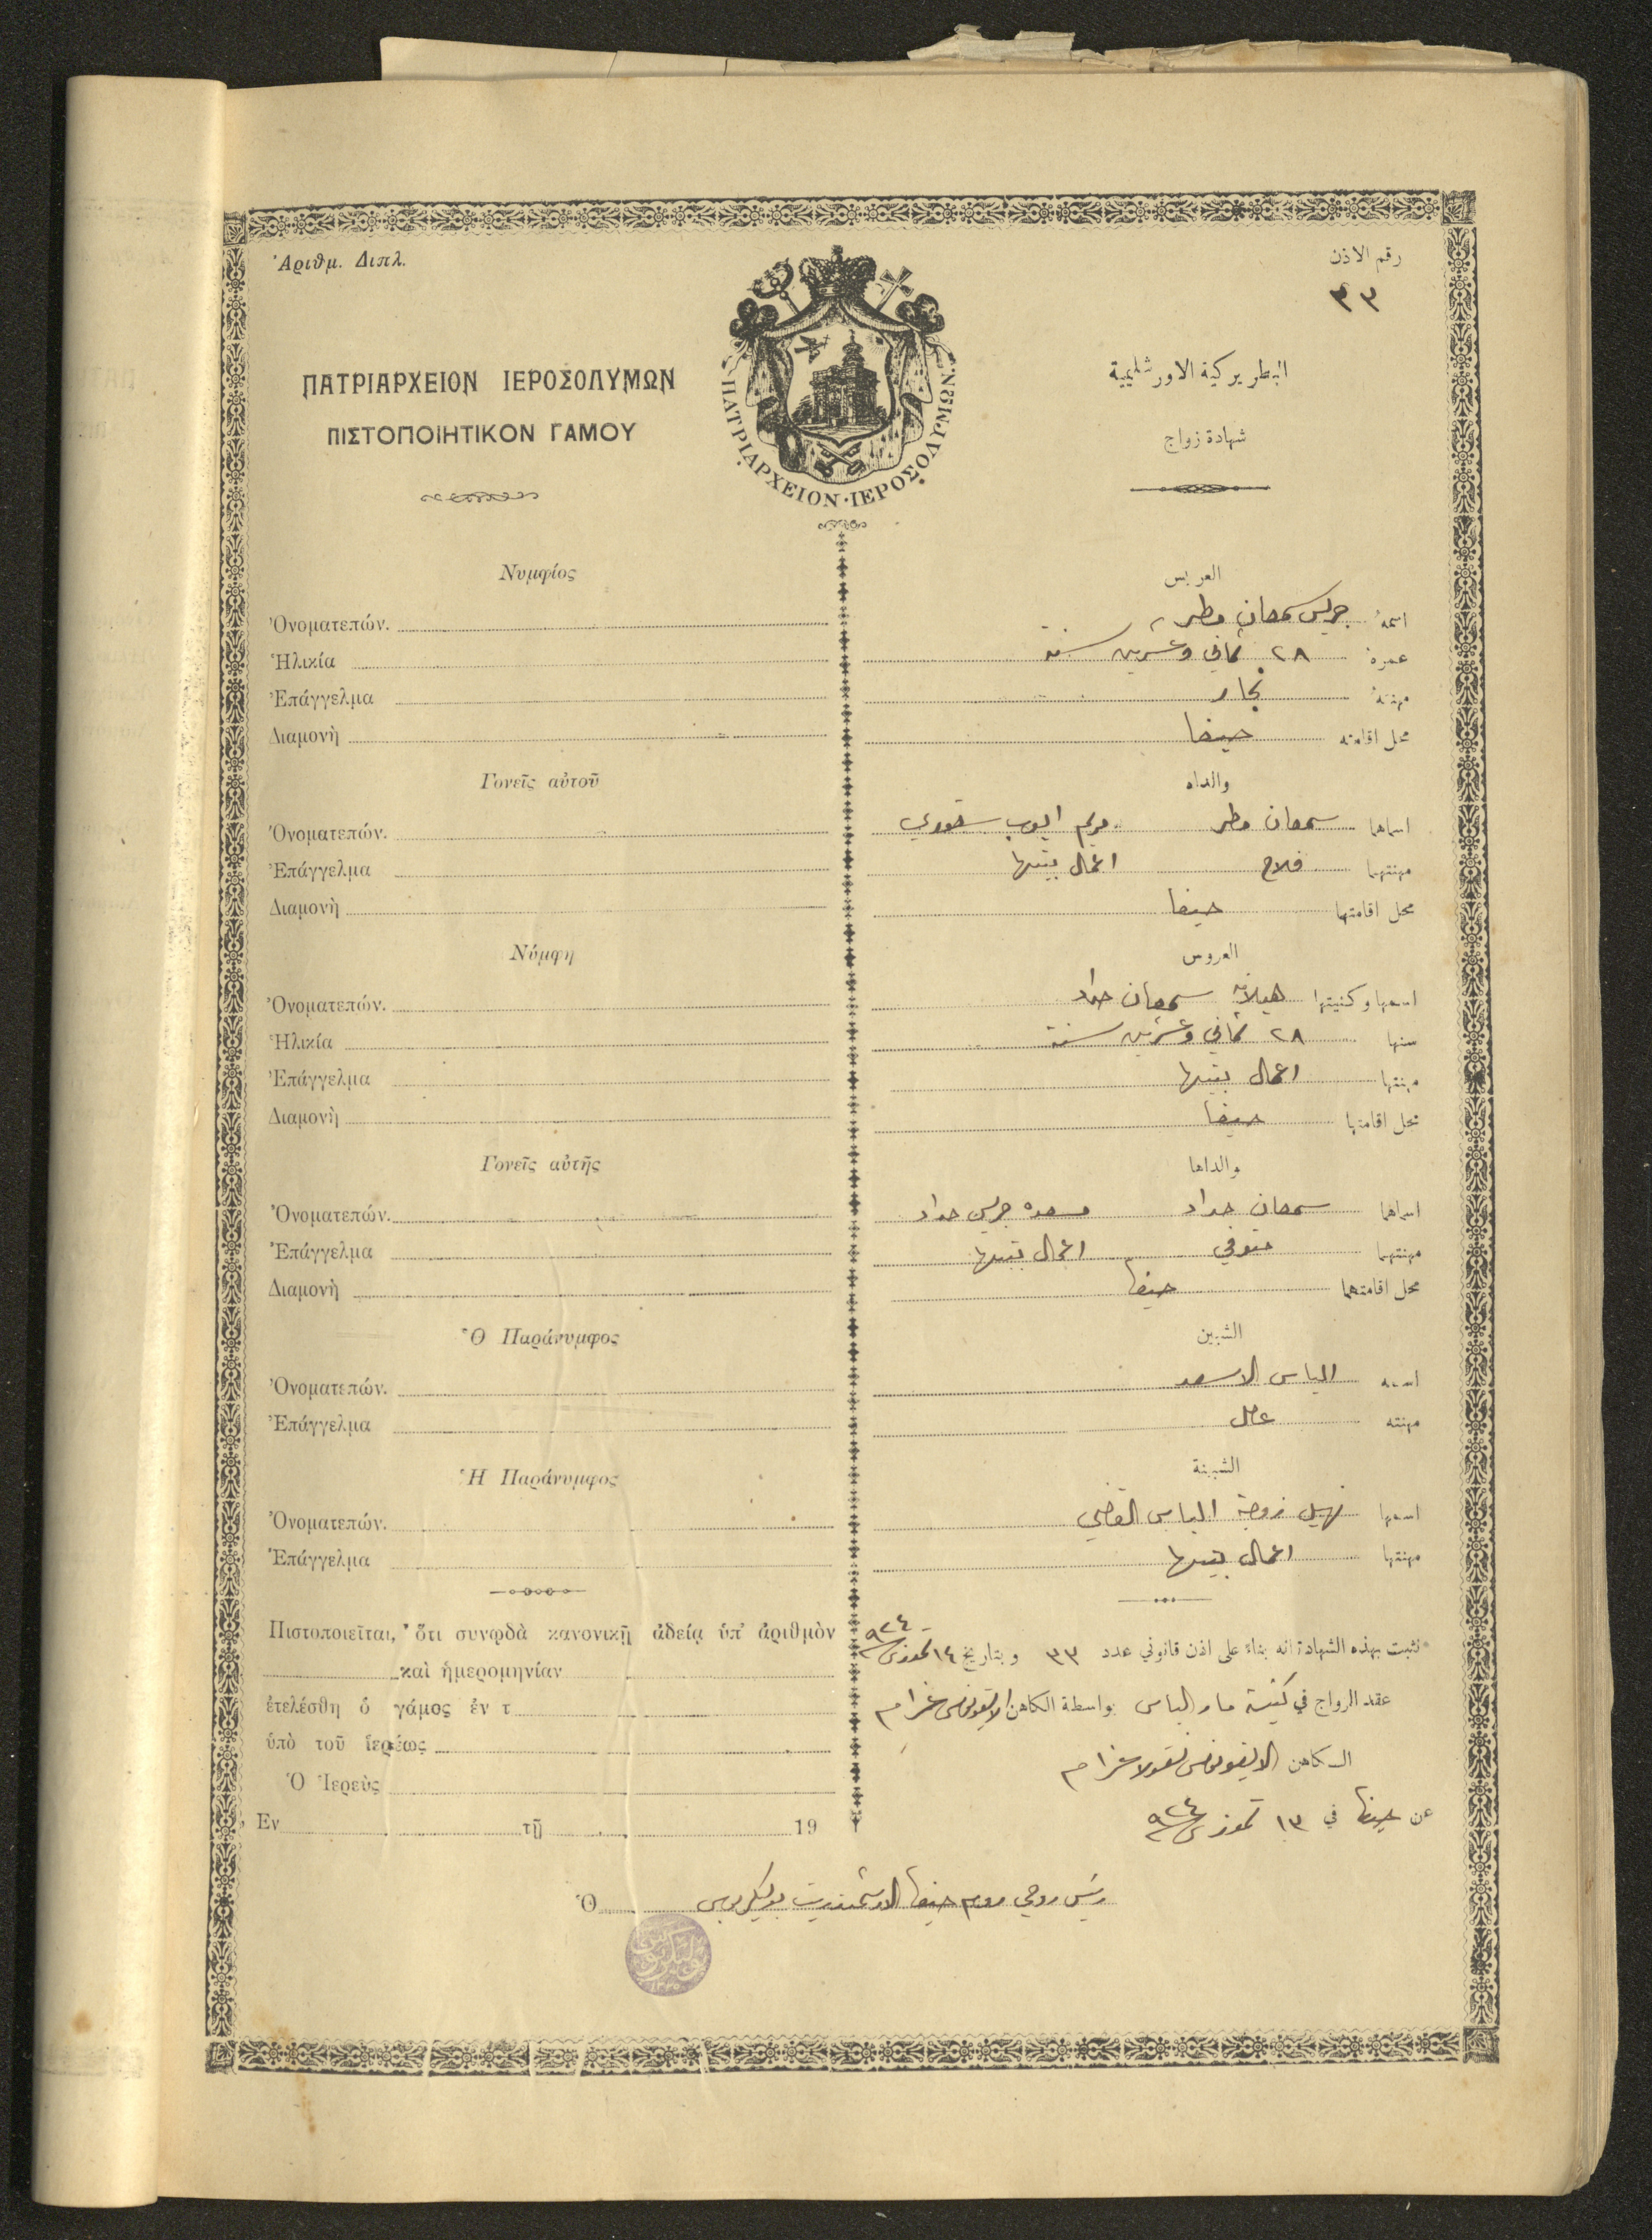 Ἀριθμ. Διπλ.
رقم الاذن
٣٣
ΠΑΤΡΙΑΡΧΕΙΟΝ ΙΕΡΟΣΟΛΥΜΩΝ
ΠΙΣΤΟΠΟΙΗΤΙΚΟΝ ΓΑΜΟΥ
ΠΑΤΡΙΑΡΧΕΙΟΝ·ΙΕΡΟΣΟΛΥΜΩΝ·
البطريركية الاورشليمية
شهادة زواج
Νυμφίος
Ὀνοματεπών.
Ἡλικία
Ἐπάγγελμα
Διαμονὴ
Γονεῖς αὐτοῦ
Ὀνοματεπών.
Ἐπάγγελμα
Διαμονὴ
Νύμφη
Ὀνοματεπών.
Ἡλικία
Ἐπάγγελμα
Διαμονὴ
Γονεῖς αὐτῆς
Ὀνοματεπών.
Ἐπάγγελμα
Διαμονὴ
Ὁ Παράνυμφος
Ὀνοματεπών.
Ἐπάγγελμα
Ἡ Παράνυμφος
Ὀνοματεπών.
Ἐπάγγελμα
Πιστοποιεῖται, ὅτι συνῳδὰ κανονικῇ ἀδείᾳ ὑπ' ἀριθμὸν
καὶ ἡμερομηνίαν
ἐτελέσθη ὁ γάμος ἐν τ
ὑπὸ τοῦ ἱερέως
Ὁ Ἱερεὺς
Εν τῇ 19
العريس
اسمهٔ جريس سمعان مطر
عمرهٔ ٢٨ ثماني وعشرين سنة
مهنتهٔ نجار
محل اقامته حيفا
والداه
اسماهما سمعان مطر مريم ايوب
مهنتهما فلاح اعمال بيتها
محل اقامتها حيفا
العروس
اسمها وكنيتها هيلانه سمعان حداد
سنها ٢٨ ثماني وعشرين سنة
مهنتها اعمال بيتها
محل اقامتها حيفا
والداها
اسماهما سمعان حداد مسعده جريس حداد
مهنتهما اعمال بيتها
محل اقامتهما حيفا
الشبين
اسمه الياس الاسعد
مهنته
الشبينة
اسمها زوجة الياس
مهنتها اعمال بيتها
نثبت بهذه الشهادة انه بناء على اذن قانوني عدد ٣٣ وبتاريخ ١٤ تموز ٩٢٤
عقد الزواج في كنيسة مار الياس بواسطة الكاهن الايقونومس
الكاهن الايقونومس نقولا
عن حيفا في ١٣ تموز ٩٢٤
Ὁ رئيس روحي روم حيفا الارشمندريت